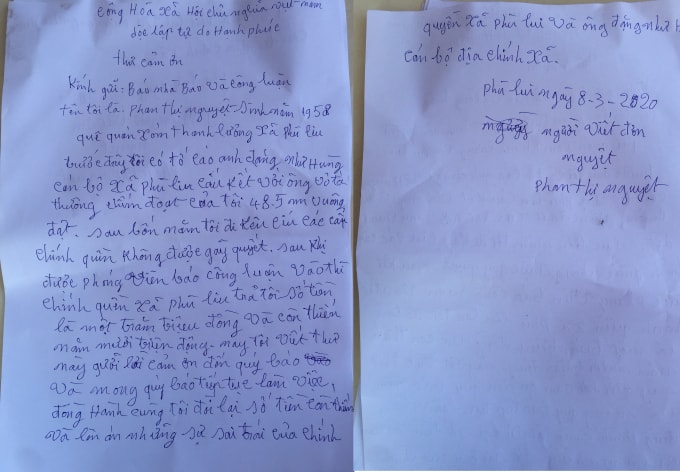 Cộng Hòa Xã Hội chủ nghĩa việt nam
độc lập tự do Hạnh phúc
Thư cảm ơn
Kính gửi: Báo nhà Báo và công luận
tên tôi là. phan thị nguyệt. Sinh năm 1958
quê quán xóm thanh lương xã phú liu
trước đây tôi có tố cáo anh đặng như Hưng
cán bộ xã phú liu cấu kết với ông võ tá
thưởng chiếm đoạt của tôi 48.5 m vuông
đất. sau bốn năm tôi đi kêu cứu các cấp
chính quền không được gãy quyết. sau khi
được phóng viên báo công luận vào thì
chính quền xã phú liu trả tôi số tiền
là một trăm triệu đồng và còn thiếu
năm mươi triệu đồng. nay tôi viết thư
này gưởi lời cảm ơn đến quý báo
và mong quý báo tiếp tục làm việc,
đồng Hành cung tôi đòi lại số tiền còn thiếu
và lên án những sự sai trái của chính
quyền xã phú lui và ông đặng như H
cán bộ địa chính xã.
phú lui ngày 8-3-2020
người viết đơn
nguyệt
phan thị nguyệt